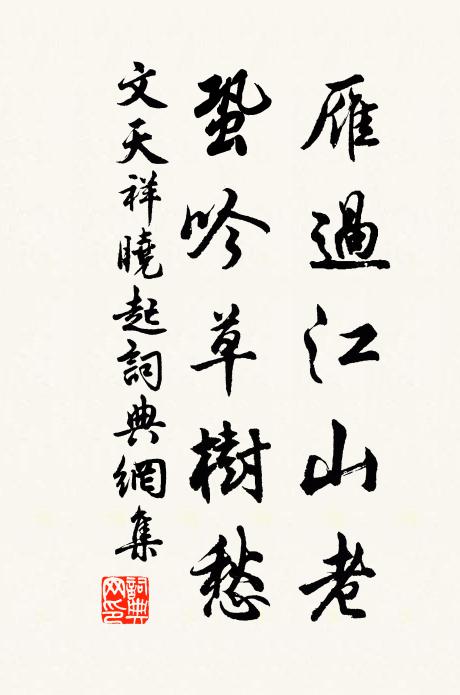 雁過江山老
蛩吟草樹愁
文天祥曉起詞典網集
詞典網印